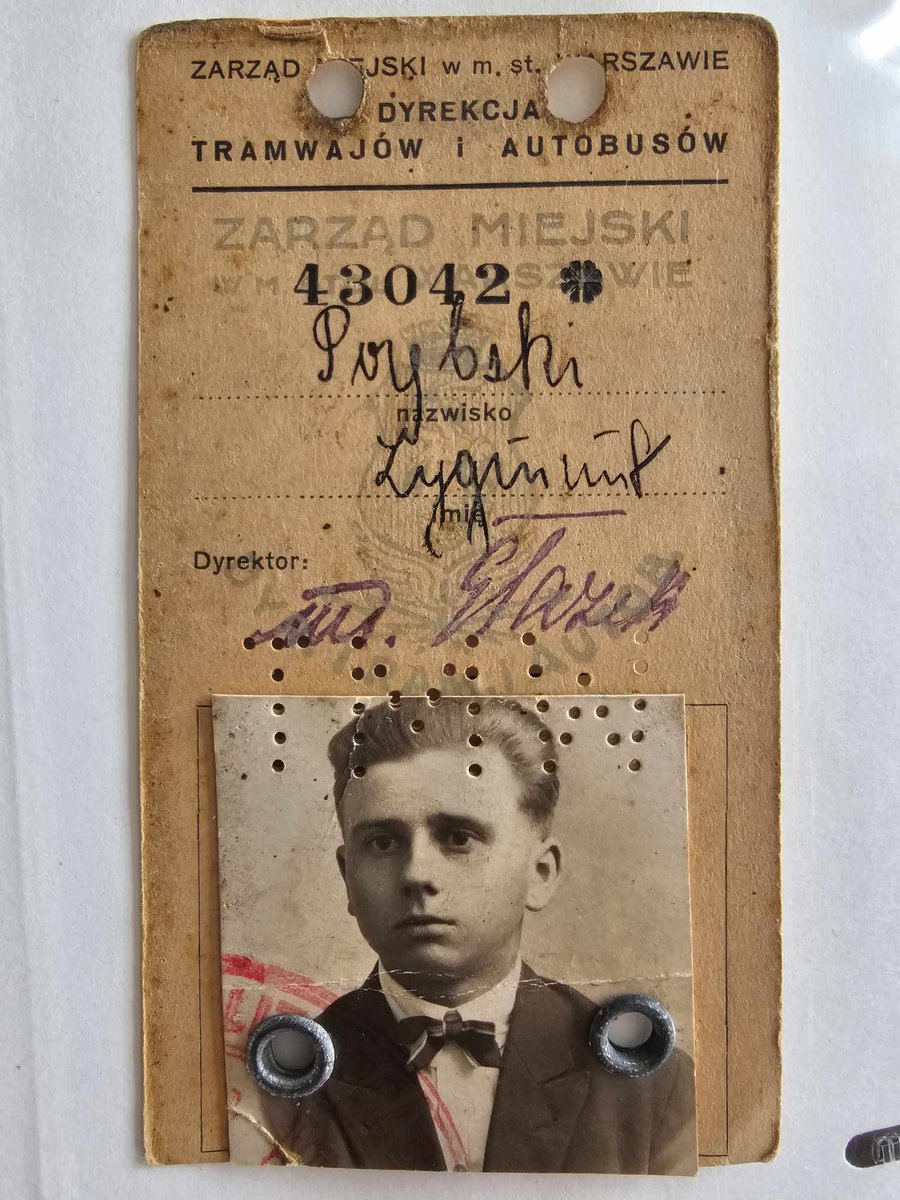 ZARZĄD MIEJSKI w m. st. WARSZAWIE
DYREKCJA
TRAMWAJÓW i AUTOBUSÓW
ZARZĄD MIEJSKI
W M. ST. WARSZAWIE
43042
nazwisko
Zygmunt
imię
Dyrektor: